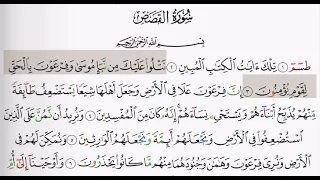 سُورَةُ القَصَصِ
بِسْمِ اللَّهِ الرَّحْمَٰنِ الرَّحِيمِ
طسٓمٓ ۝١ تِلْكَ ءَايَٰتُ ٱلْكِتَٰبِ ٱلْمُبِينِ ۝٢ نَتْلُوا۟ عَلَيْكَ مِن نَّبَإِ مُوسَىٰ وَفِرْعَوْنَ بِٱلْحَقِّ
لِقَوْمٍ يُؤْمِنُونَ ۝٣ إِنَّ فِرْعَوْنَ عَلَا فِى ٱلْأَرْضِ وَجَعَلَ أَهْلَهَا شِيَعًا يَسْتَضْعِفُ طَآئِفَةً
مِّنْهُمْ يُذَبِّحُ أَبْنَآءَهُمْ وَيَسْتَحْىِۦ نِسَآءَهُمْ إِنَّهُۥ كَانَ مِنَ ٱلْمُفْسِدِينَ ۝٤ وَنُرِيدُ أَن نَّمُنَّ عَلَى ٱلَّذِينَ
ٱسْتُضْعِفُوا۟ فِى ٱلْأَرْضِ وَنَجْعَلَهُمْ أَئِمَّةً وَنَجْعَلَهُمُ ٱلْوَٰرِثِينَ ۝٥ وَنُمَكِّنَ لَهُمْ فِى
ٱلْأَرْضِ وَنُرِىَ فِرْعَوْنَ وَهَٰمَٰنَ وَجُنُودَهُمَا مِنْهُم مَّا كَانُوا۟ يَحْذَرُونَ ۝٦ وَأَوْحَيْنَآ إِلَىٰٓ أُمِّ